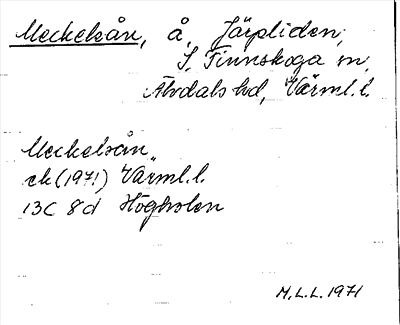 Meckelsån, å, Järpliden,
S. Finnskoga sn,
Älvdals hd, Värml. l.
Meckelsån
ek (1971) Värml. l.
13C 8d Högholen
M. L. L. 1971